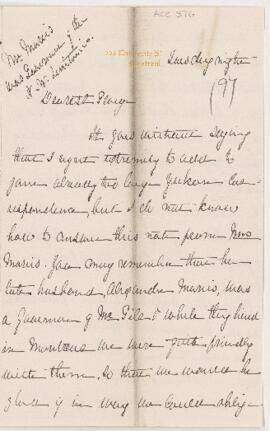 ACC 576
Mr. Morris
was Governor of the
N. W. Territories.
University St
Montreal
Tuesday night
197
Dearest George
It goes without saying
that I regret extremely to add to
your already too large Yukon Cor-
respondence but I do not know
how to answer this note from Mrs
Morris. You may remember that her
late husband, Alexander Morris, was
a Governor of McGill & while they lived
in Montreal we were quite friendly
with them, so that we would be
glad if in any way we could oblige